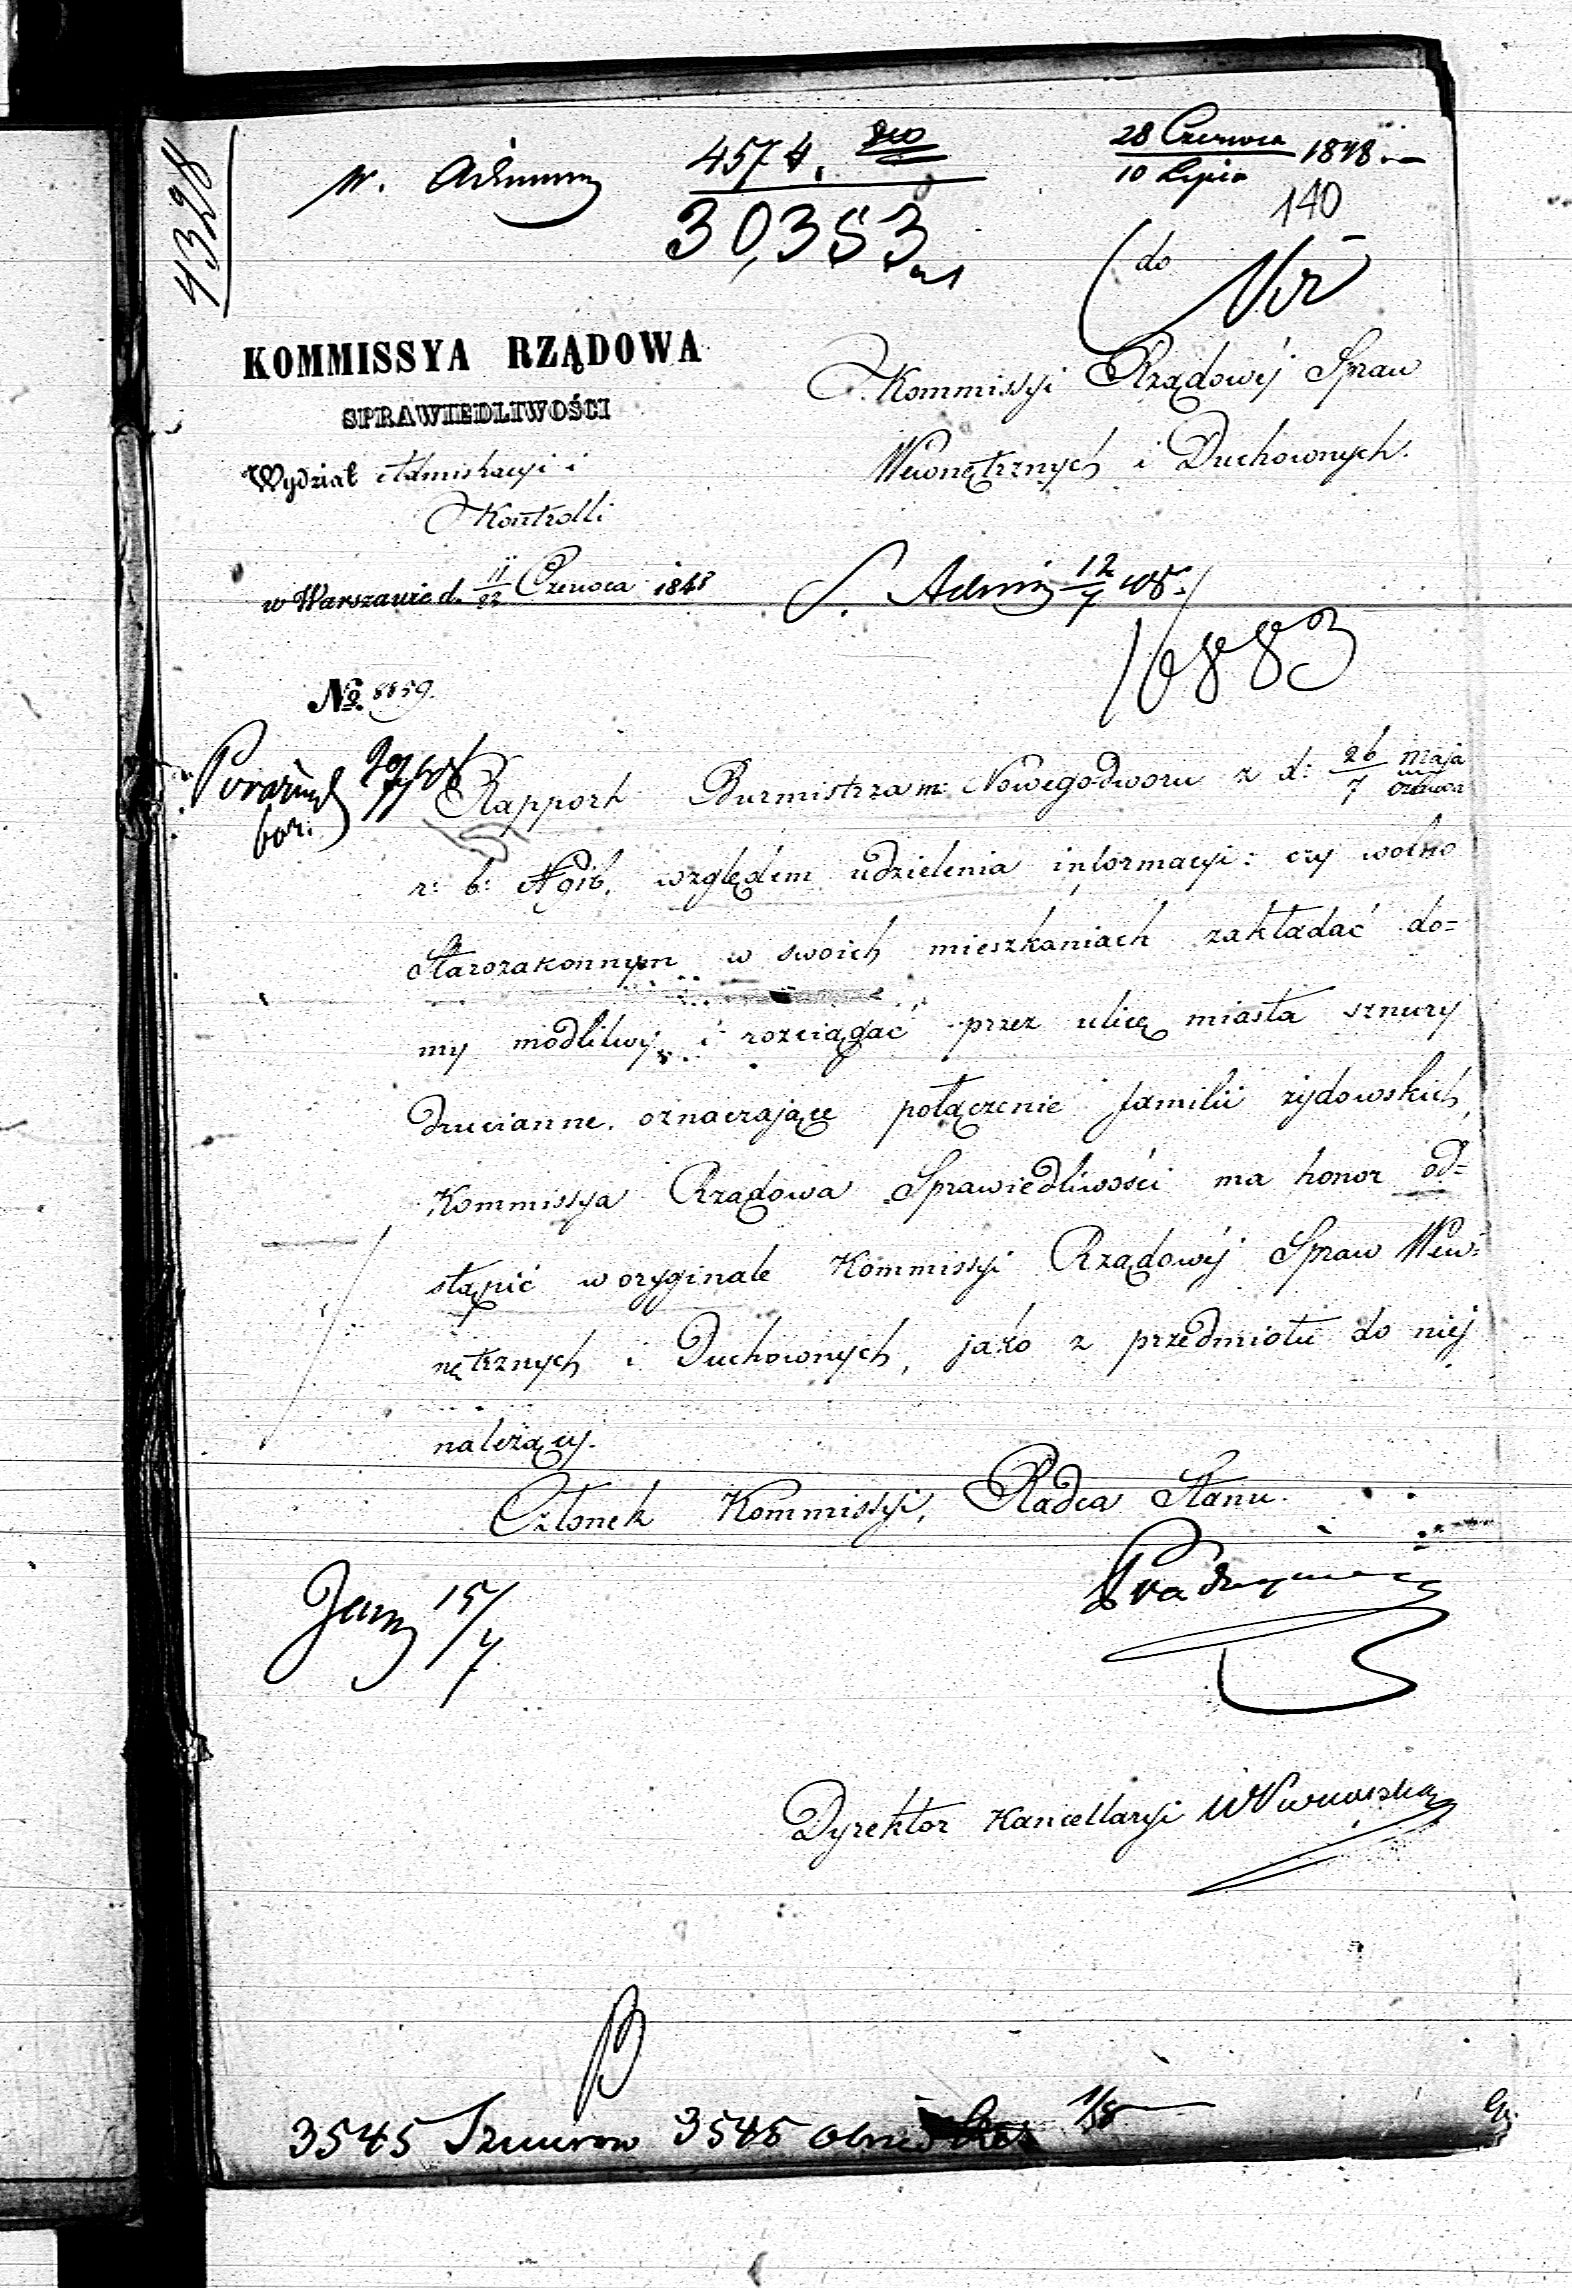 4328
W. Admin
4574.
30,353
28 Czerwca
10 Lipca 1848
140
do
KOMMISSYA RZĄDOWA
SPRAWIEDLIWOŚCI
Wydział Administracyi i
Kontrolli
w Warszawie d. 11/23 Czerwca 1848
Kommissyi Rządowéj Spraw
Wewnętrznych i Duchownych.
S. Admin 12/7 48.
16883
No. 8859.
Rapport Burmistrza m: Nowegodworu z d: 26 Maja
7 Czerwca
r: b: N 916. względem udzielenia informacyi: czy wolno
Starozakonnym w swoich mieszkaniach zakładać do=
my modlitwy i rozciągać przez ulicę miasta sznury
drucianne. oznaczające połączenie familii żydowskich,
Kommissya Rządowa Sprawiedliwości ma honor od=
stąpić w oryginale Kommissyi Rządowéj Spraw Wew=
nętrznych i Duchownych, jako z przedmiotu do niéj
należącéj.
Członek Kommissyi, Radca Stanu.
15/7
Dyrektor Kancellaryi
3545 Sznurow 3546